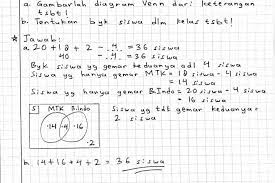 a. Gambarlah diagram Venn dari keterangan tsbt!
b. Tentukan byk siswa dlm kelas tsbt!
* Jawab:
a. 20 + 18 + 2 - .4. = 36 siswa
40 - .4. = 36 siswa
Byk siswa yg gemar keduanya adl 4 siswa
Siswa yg hanya gemar MTK = 18 siswa - 4 siswa
= 14 siswa
Siswa yg hanya gemar B.Indo = 20 siswa - 4 siswa
= 16 siswa
S MTK B.Indo
Siswa yg tdt gemar keduanya =
•14 •4 •16
2 siswa
•2
b. 14 + 16 + 4 + 2 = 36 siswa